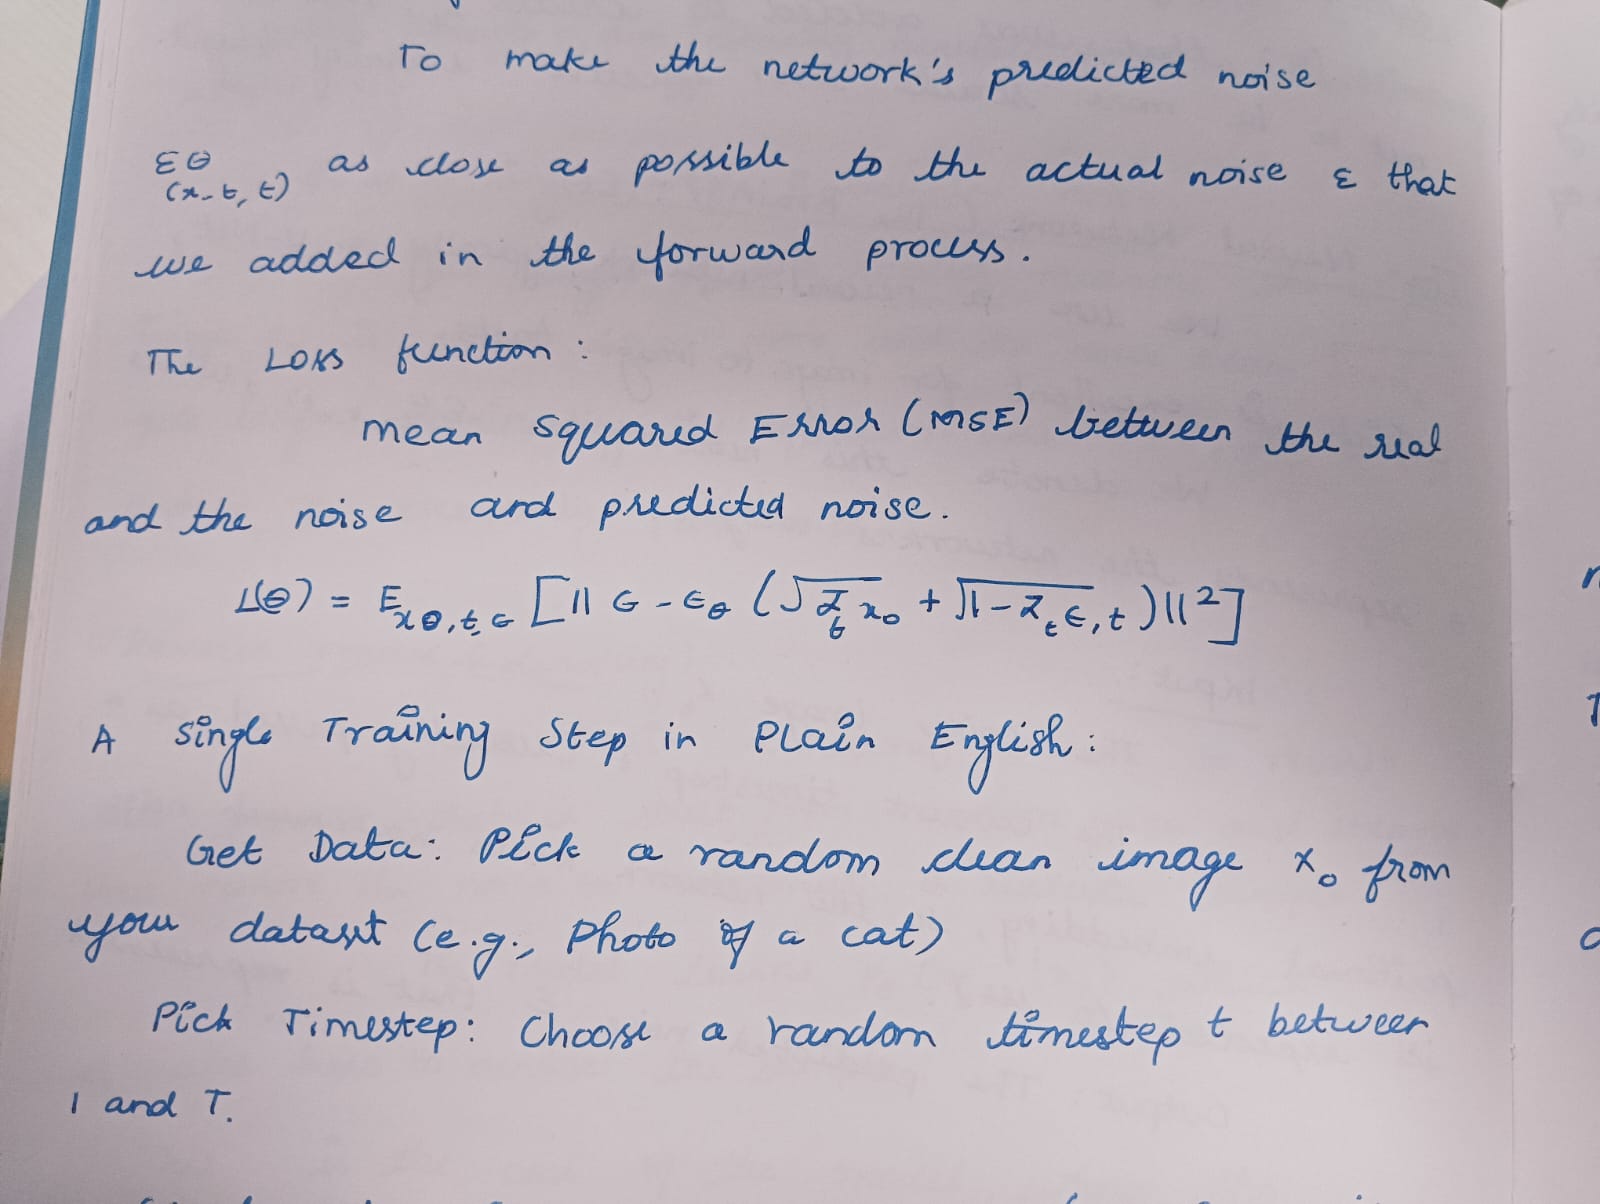 To make the network's predicted noise
εθ as close as possible to the actual noise ε that
(x-t, t)
we added in the forward process.
The Loss function :
Mean Squared Error (MSE) between the real
and the noise and predicted noise.
L(θ) = E_{xθ,t,ϵ} [|| ϵ - ϵ_θ (√(α̅_t) x₀ + √(1-α̅_t) ϵ, t )||²]
A Single Training Step in Plain English :
Get Data: Pick a random clean image x₀ from
your dataset (e.g., Photo of a cat)
Pick Timestep: Choose a random timestep t between
1 and T.